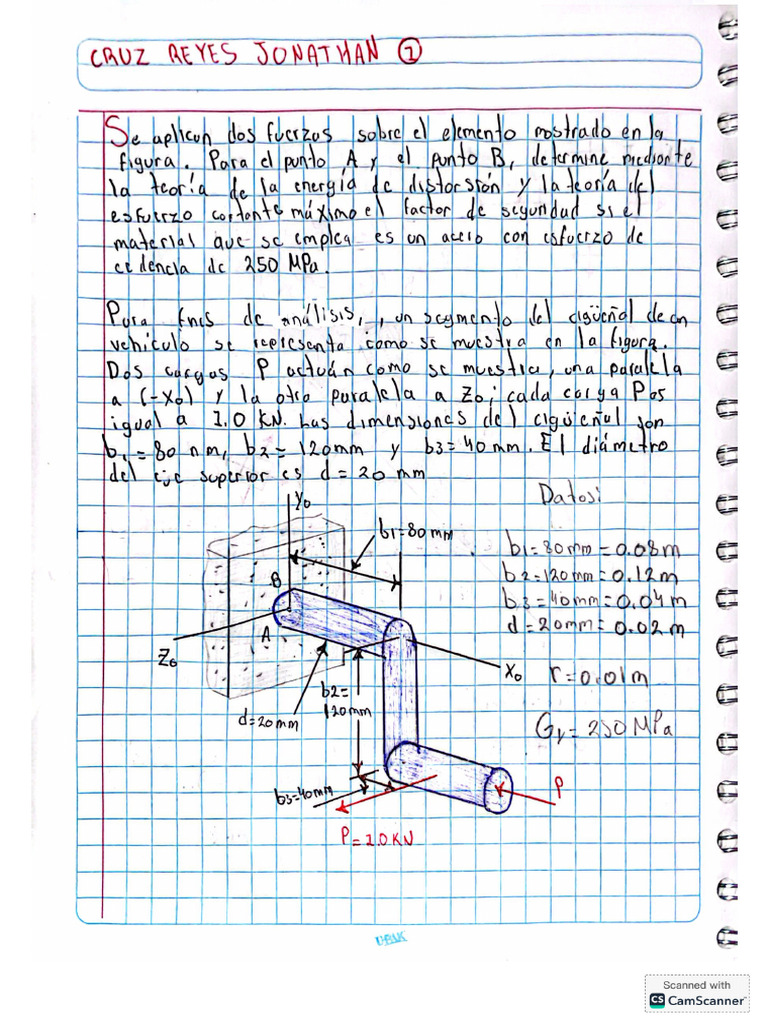 CRUZ REYES JONATHAN ①
Se aplican dos fuerzas sobre el elemento mostrado en la
figura. Para el punto A y el punto B, determine mediante
la teoría de la energía de distorsión y la teoría del
esfuerzo cortante máximo el factor de seguridad si el
material que se emplea es un acero con esfuerzo de
cedencia de 250 MPa.
Para fines de análisis, , un segmento del cigüeñal de un
vehículo se representa como se muestra en la figura.
Dos cargas P actúan como se muestra, una paralela
a (-X0) y la otra paralela a Z0; cada carga P es
igual a 1.0 KN. Las dimensiones del cigüeñal son
b1=80 mm, b2=120mm y b3=40 mm. El diámetro
del eje superior es d=20 mm
Datos:
Y0
b1=80mm
b1=80mm=0.08m
b2=120mm=0.12m
b3=40mm=0.04m
d=20mm=0.02m
B
A
Z0
X0
r=0.01m
b2=
120mm
d=20mm
Gy=250MPa
b3=40mm
P
P=1.0KN
Scanned with
CS CamScanner